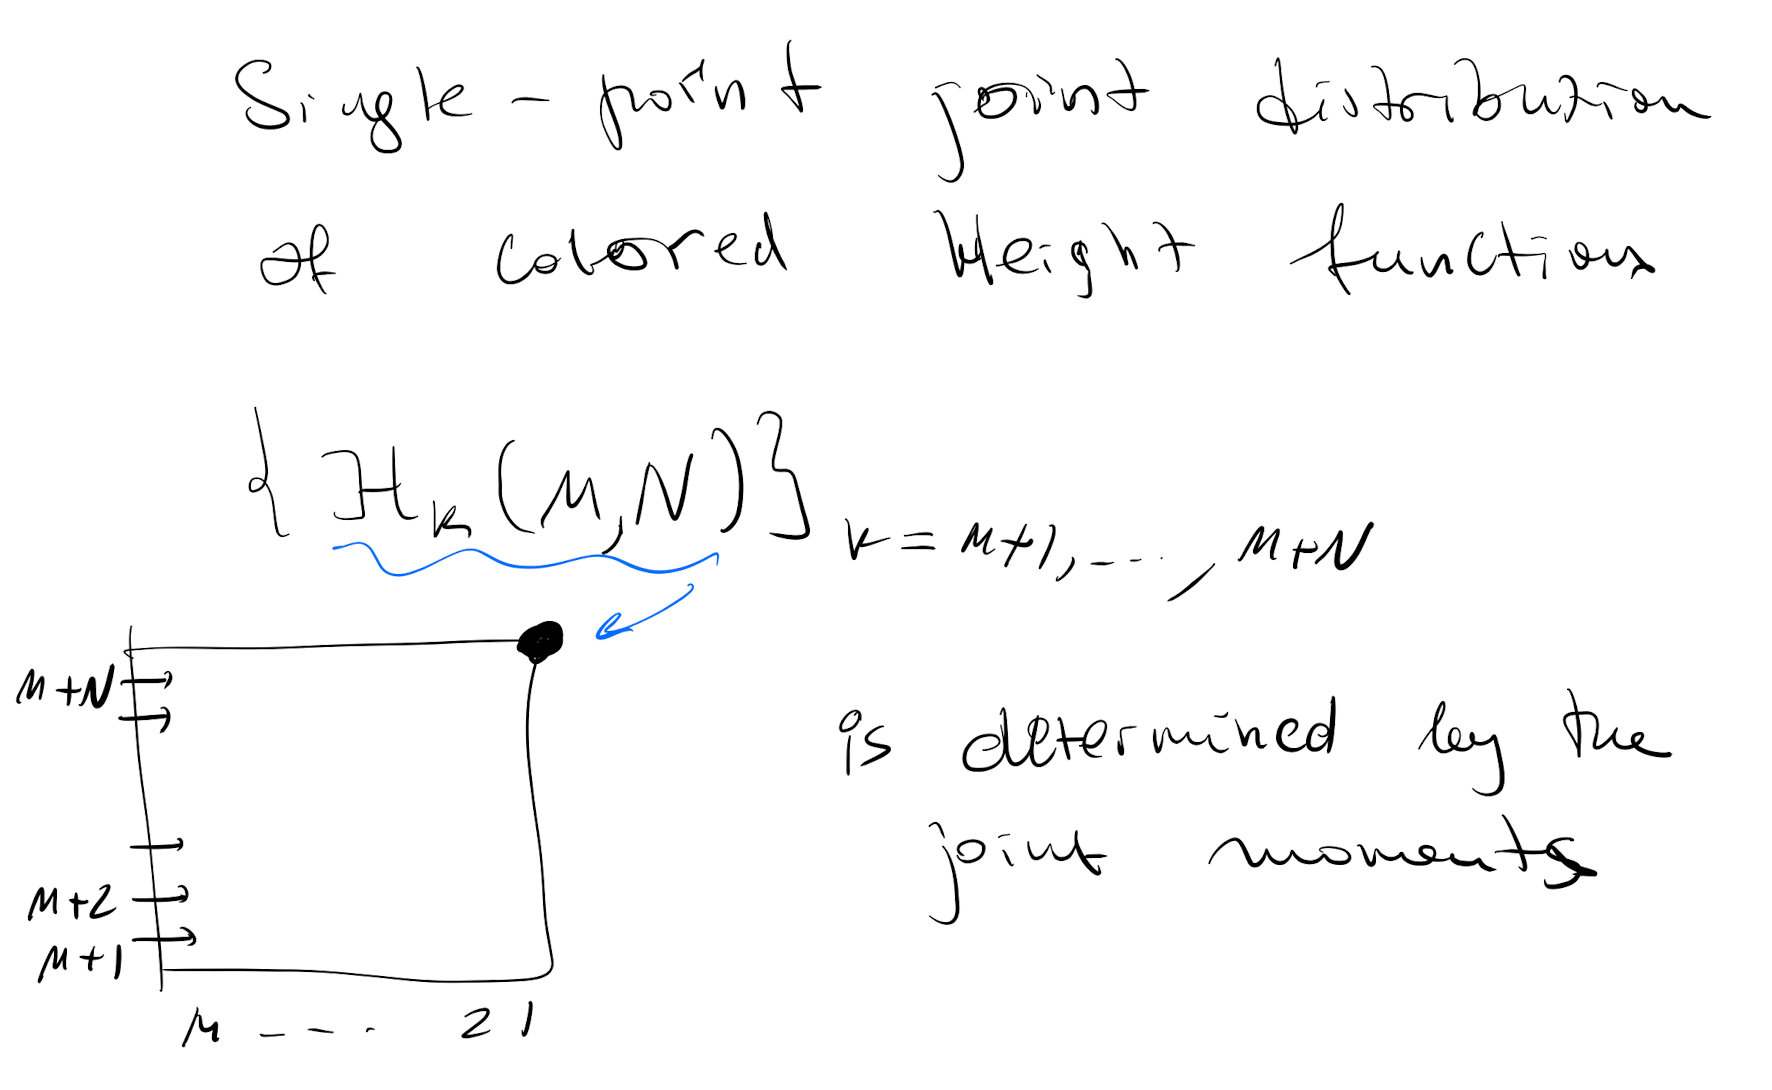 Single-point joint distribution
of colored height functions
{ℋ_k (M,N)} k = M+1, ..., M+N
M+N
is determined by the
joint moments
M+2
M+1
M --- . 2 1